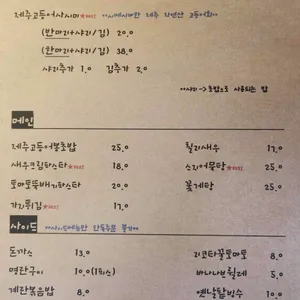 제주고등어사시미★BEST
(반마리+샤리/김) 20.0
(한마리+샤리/김) 38.0
샤리추가 1.0 김추가 2.0
**샤리->초밥으로 사용되는 밥
메인
제주고등어봉초밥 25.0
새우크림파스타★BEST 18.0
토마토뚝배기파스타 20.0
가지튀김★BEST 17.0
칠리새우 17.0
스지어묵탕★BEST 25.0
꽃게탕 25.0
사이드
돈까스 13.0
명란구이 10.0(1피스)
계란볶음밥 8.0
리코타꿀토마토 8.0
바나나브륄레 5.0
옛날팥빙수 10.0